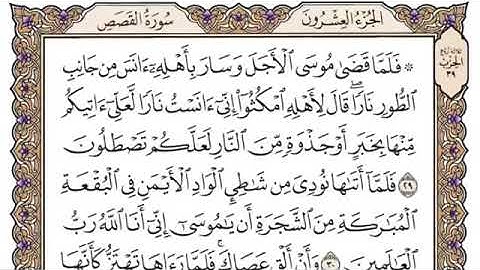 الجُزْءُ العِشْرُونَ
سُورَةُ القَصَصِ
الحِزْبِ
٣٩
۞ فَلَمَّا قَضَىٰ مُوسَى ٱلْأَجَلَ وَسَارَ بِأَهْلِهِۦٓ ءَانَسَ مِن جَانِبِ
ٱلطُّورِ نَارًاۖ قَالَ لِأَهْلِهِ ٱمْكُثُوٓا۟ إِنِّىٓ ءَانَسْتُ نَارًا لَّعَلِّىٓ ءَاتِيكُم
مِّنْهَا بِخَبَرٍ أَوْ جَذْوَةٍ مِّنَ ٱلنَّارِ لَعَلَّكُمْ تَصْطَلُونَ
٢٩ فَلَمَّآ أَتَىٰهَا نُودِىَ مِن شَٰطِئِ ٱلْوَادِ ٱلْأَيْمَنِ فِى ٱلْبُقْعَةِ
ٱلْمُبَٰرَكَةِ مِنَ ٱلشَّجَرَةِ أَن يَٰمُوسَىٰٓ إِنِّىٓ أَنَا ٱللَّهُ رَبُّ
ٱلْعَٰلَمِينَ ٣٠ وَأَنْ أَلْقِ عَصَاكَۖ فَلَمَّا رَءَاهَا تَهْتَزُّ كَأَنَّهَا